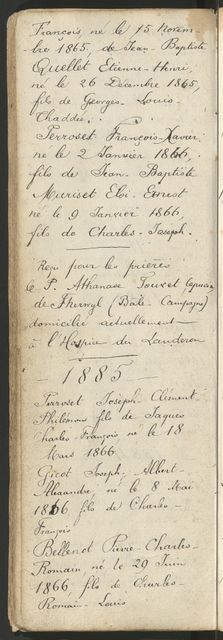 François, né le 15 Novem
bre 1865, de Jean-Baptiste
Quellet Etienne-Henri,
né le 26 Décembre 1865,
fils de Georges-Louis-
Chaddée.
Perroset François-Xavier
né le 2 Janvier 1866,
fils de Jean-Baptiste
Muriset Eloi-Ernest
né le 9 Janvier 1866,
fils de Charles-Joseph.
Reçu pour les prières
le P. Athanase Jouvet Capucin
de (Bade. Campagne)
domicilié actuellement
à l'Hospice du Landeron
1885
Perroset Joseph-Clément-
Philémon fils de Jaques
Charles-François né le 18
Mars 1866
Gicot Joseph-Albert-
Alexandre, né le 8 Mai
1866 fils de Charles-
François
Bellenot Pierre-Charles-
Romain né le 29 Juin
1866, fils de Charles-
Romain-Louis